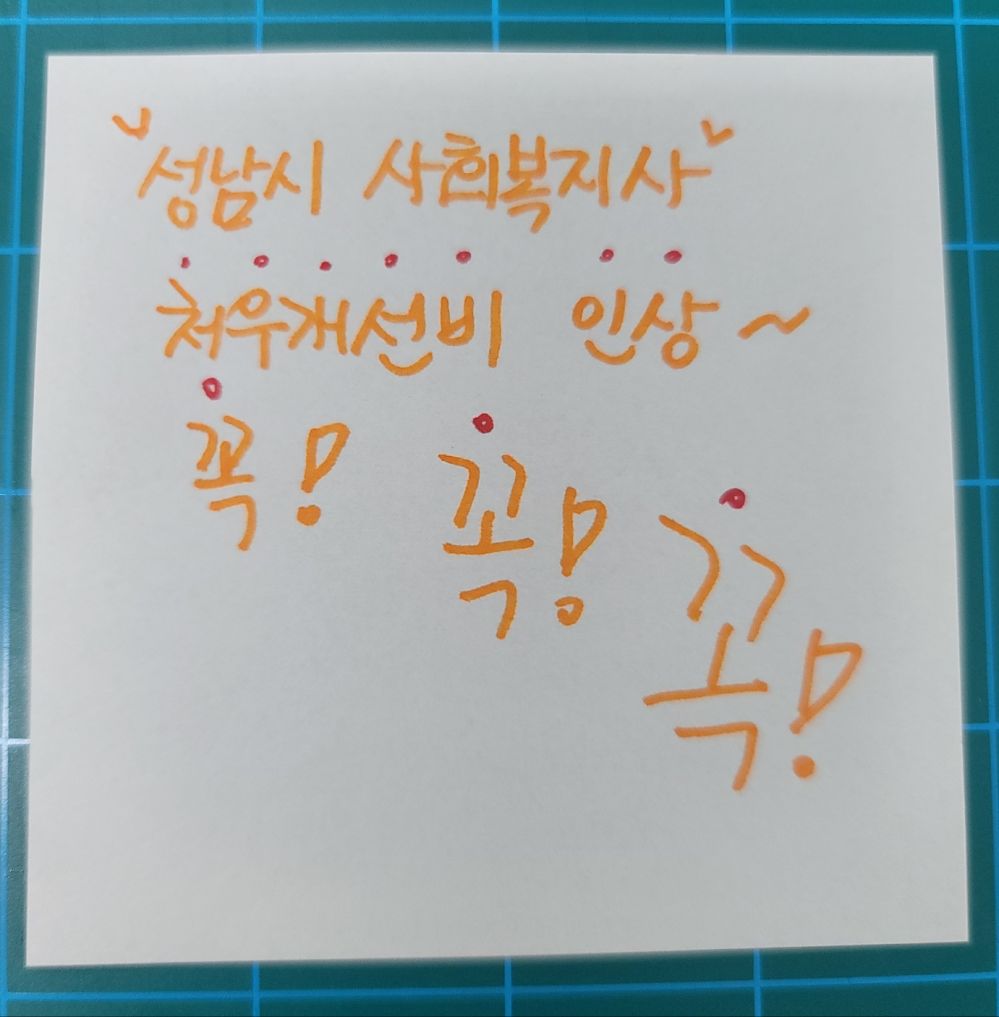 "성남시 사회복지사"
처우개선비 인상~
꼭! 꼭! 꼭!